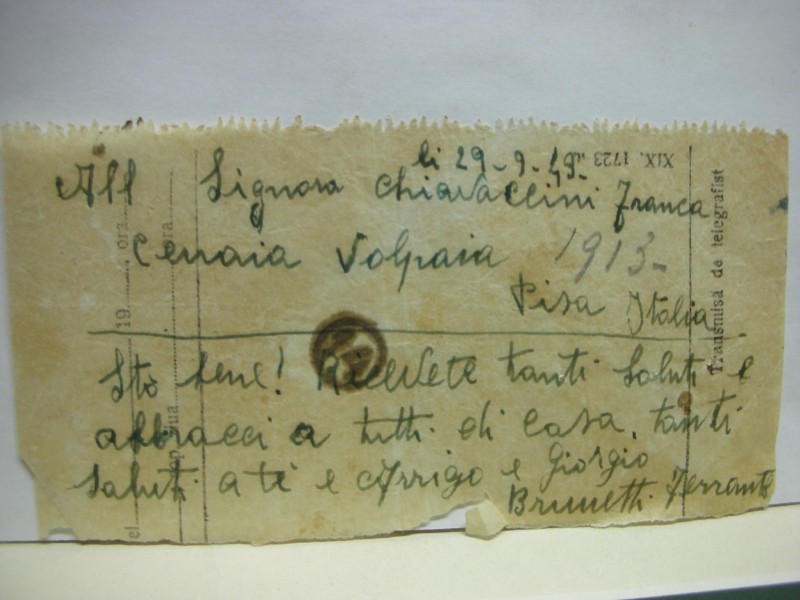 li 29-9-43-
All Signora Chiavaccini Franca
Cerraia Volpaia 1913-
Pisa Italia
Sto bene! Ricevete tanti Saluti e
abbracci a tutti di casa, tanti
Saluti a te e Arrigo e Giorgio
Brunetti Ferrante
XIX. 1723
Transmisă de telegrafist
ora
19
ora
el